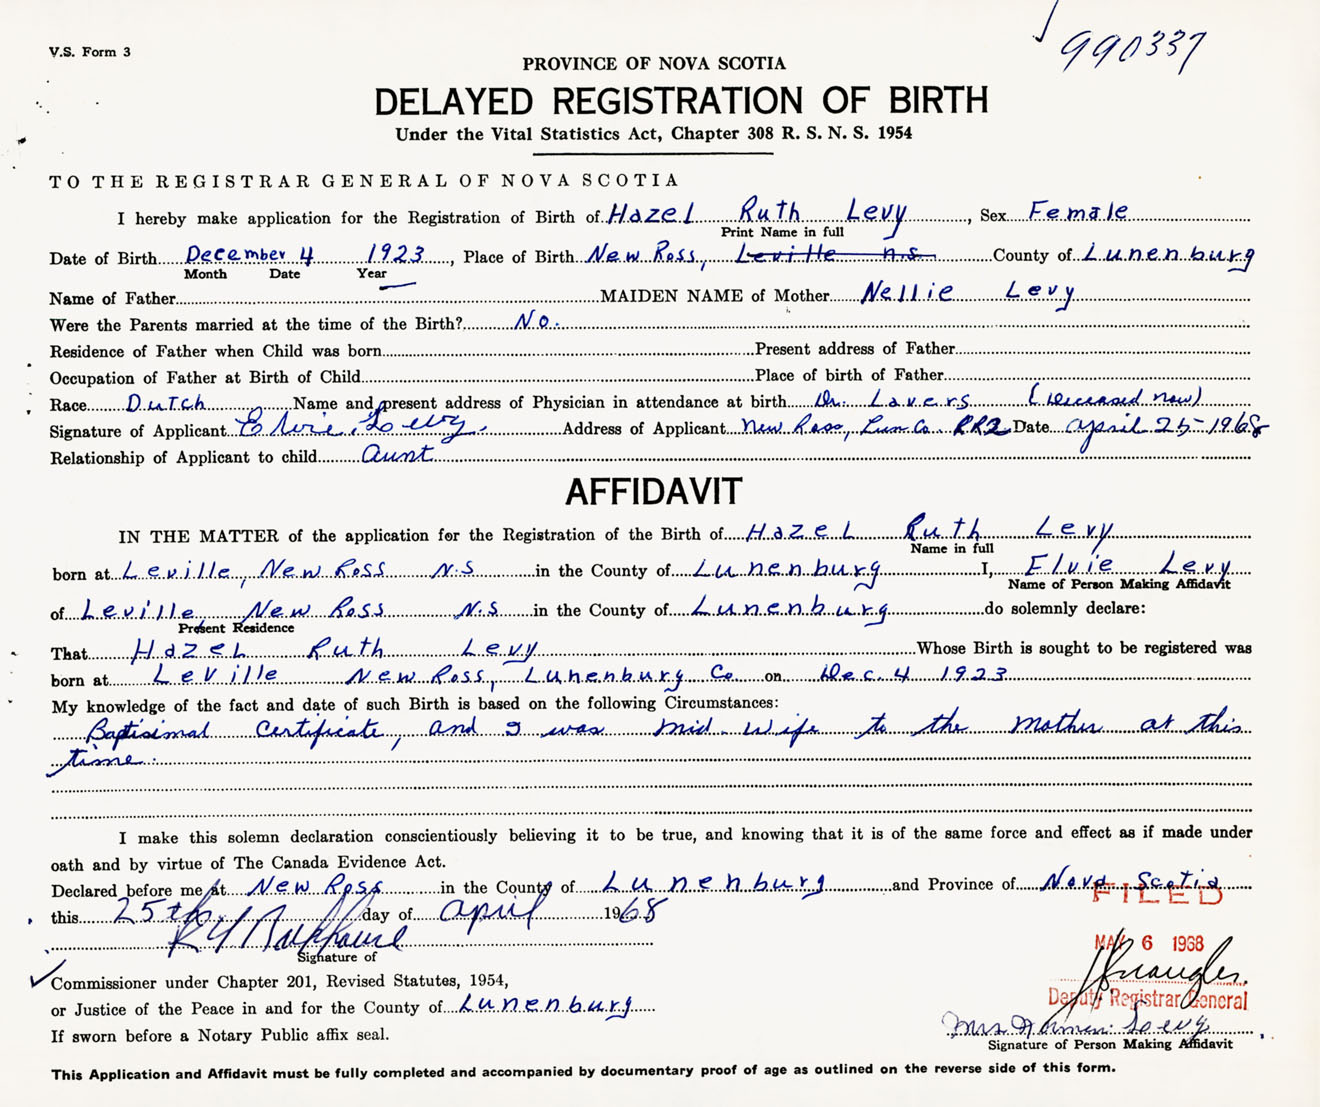 990337
V.S. Form 3
PROVINCE OF NOVA SCOTIA
DELAYED REGISTRATION OF BIRTH
Under the Vital Statistics Act, Chapter 308 R. S. N. S. 1954
TO THE REGISTRAR GENERAL OF NOVA SCOTIA
I hereby make application for the Registration of Birth of Hazel Ruth Levy, Sex Female
Print Name in full
Date of Birth December 4 1923, Place of Birth New Ross, Leville n.s. County of Lunenburg
Month Date Year
Name of Father MAIDEN NAME of Mother Nellie Levy
Were the Parents married at the time of the Birth? No.
Residence of Father when Child was born Present address of Father
Occupation of Father at Birth of Child Place of birth of Father
Race Dutch Name and present address of Physician in attendance at birth Dr. Lavers (deceased now)
Signature of Applicant Elvie Levy. Address of Applicant New Ross, Lun. Co. RR2 Date april 25-1968
Relationship of Applicant to child aunt
AFFIDAVIT
IN THE MATTER of the application for the Registration of the Birth of Hazel Ruth Levy
Name in full
born at Leville, New Ross N.S in the County of Lunenburg I, Elvie Levy
Name of Person Making Affidavit
of Leville New Ross N.S in the County of Lunenburg do solemnly declare:
Present Residence
That Hazel Ruth Levy Whose Birth is sought to be registered was
born at Leville New Ross, Lunenburg Co on Dec. 4 1923
My knowledge of the fact and date of such Birth is based on the following Circumstances:
Baptisimal Certificate, and I was mid-wife to the mother at this
time.
I make this solemn declaration conscientiously believing it to be true, and knowing that it is of the same force and effect as if made under
oath and by virtue of The Canada Evidence Act.
Declared before me at New Ross in the County of Lunenburg and Province of Nova Scotia
FILED
this 25th day of april 1968
MAY 6 1968
Signature of
Commissioner under Chapter 201, Revised Statutes, 1954,
Deputy Registrar General
or Justice of the Peace in and for the County of Lunenburg
Mrs Norman Levy
If sworn before a Notary Public affix seal.
Signature of Person Making Affidavit
This Application and Affidavit must be fully completed and accompanied by documentary proof of age as outlined on the reverse side of this form.